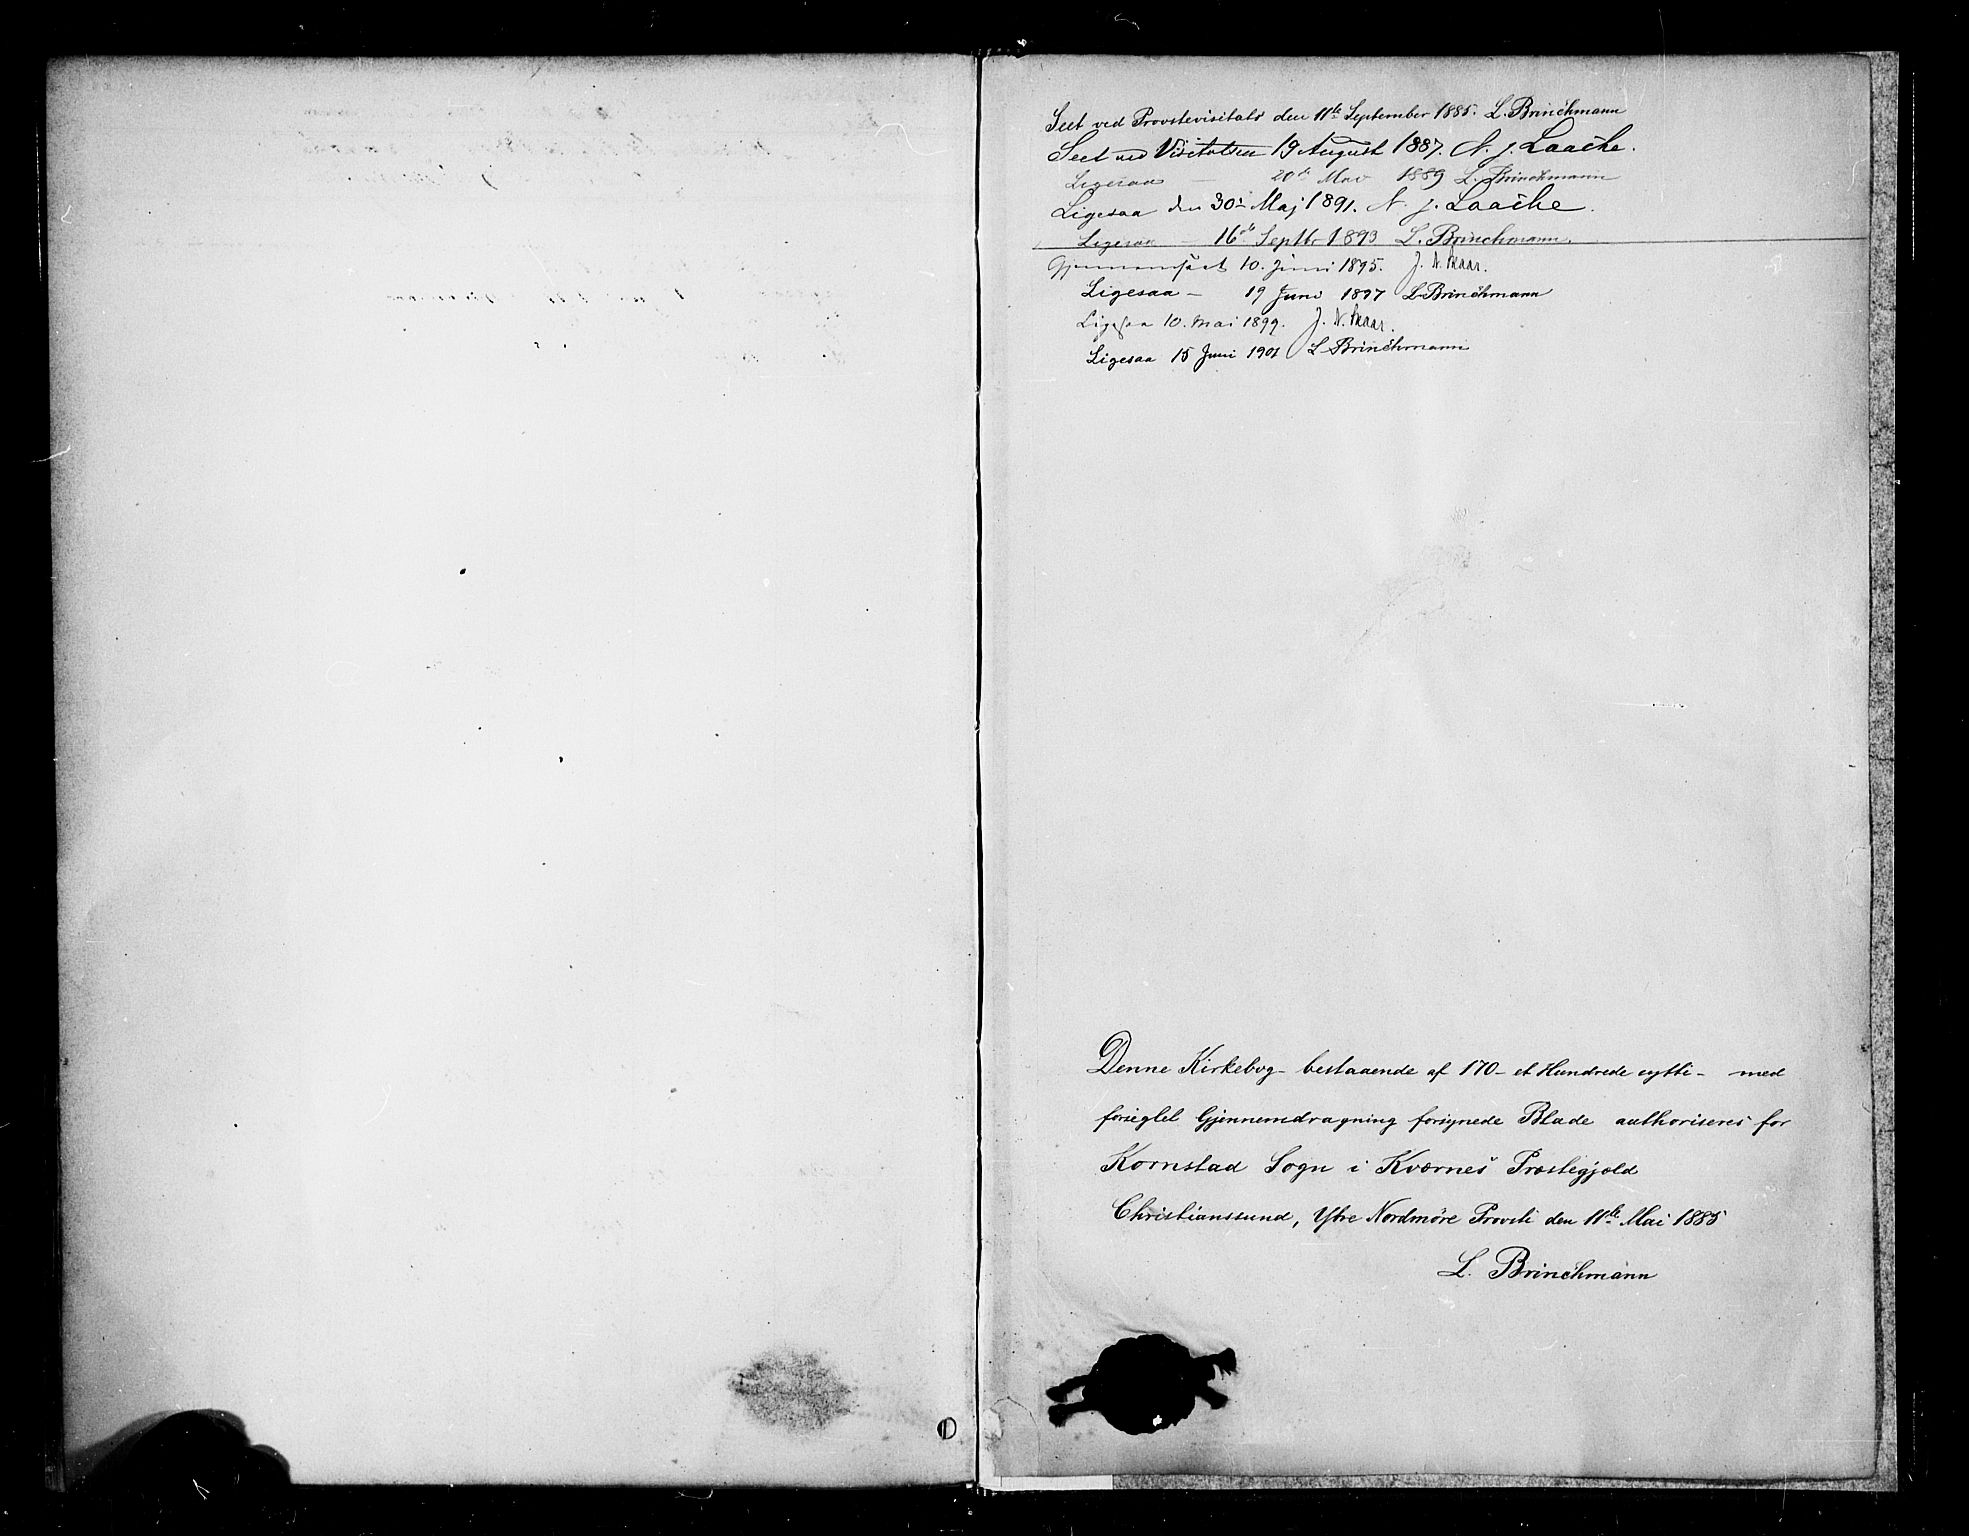 Seet ved Provstevisitats den 11te September 1885. L. Brinchmann
Seet ved Visitatsen 19 August 1887. N. J. Laache.
Ligesaa — 20de Mai 1889 L. Brinchmann
Ligesaa den 30te Maj 1891. N. J. Laache.
Ligesaa — 16de Septbr 1893 L. Brinchmann.
Gjennemseet 10. Juni 1895. J. N. Skaar.
Ligesaa — 19 Juni 1897 L. Brinchmann
Ligesaa 10. Mai 1899. J. N. Skaar.
Ligesaa 15 Juni 1901 L. Brinchmann
Denne Kirkebog - bestaaende af 170 - et Hundrede sytti - med
forseglet Gjennemdragning forsynede Blade authoriseres for
Kornstad Sogn i Kvœrnes Prœstegjœld
Christianssund, Ytre Nordmöre Provsti den 11te Mai 1885
L. Brinchmann